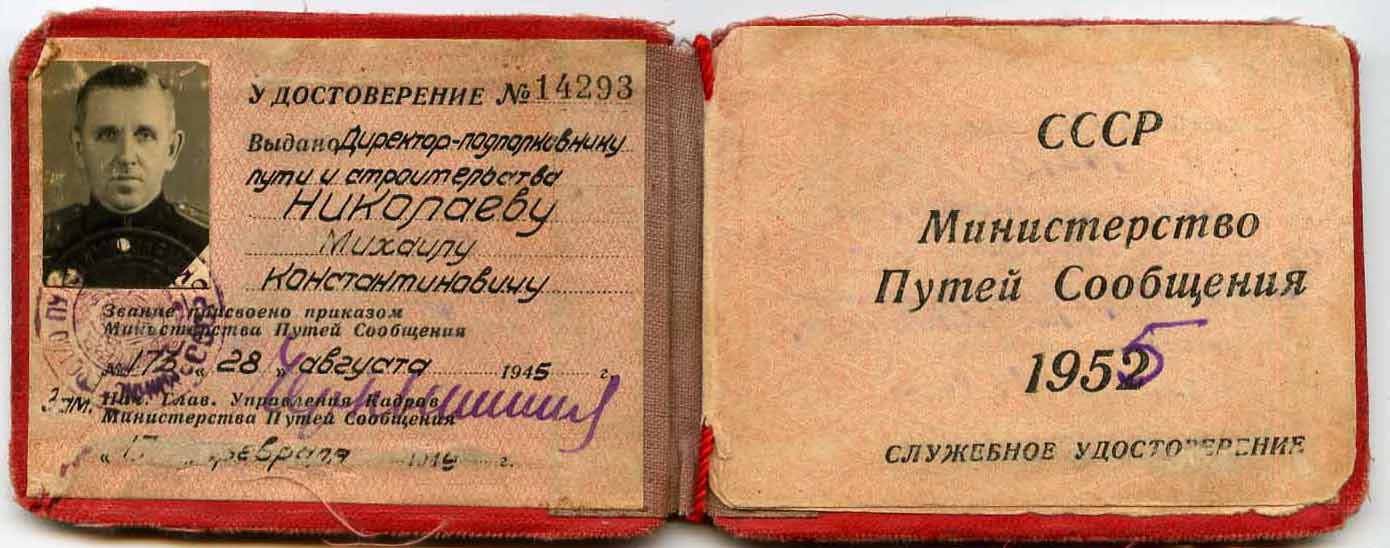 УДОСТОВЕРЕНИЕ № 14293
Выдано Директор-подполковнику
пути и строительства
Николаеву
Михаилу
Константиновичу
Звание присвоено приказом
Министерства Путей Сообщения
№ „ 28 „ августа 1945 г.
Зам. Нач. Глав. Управления Кадров
Министерства Путей Сообщения
„ „ февраля г.
СССР
Министерство
Путей Сообщения
1955
СЛУЖЕБНОЕ УДОСТОВЕРЕНИЕ